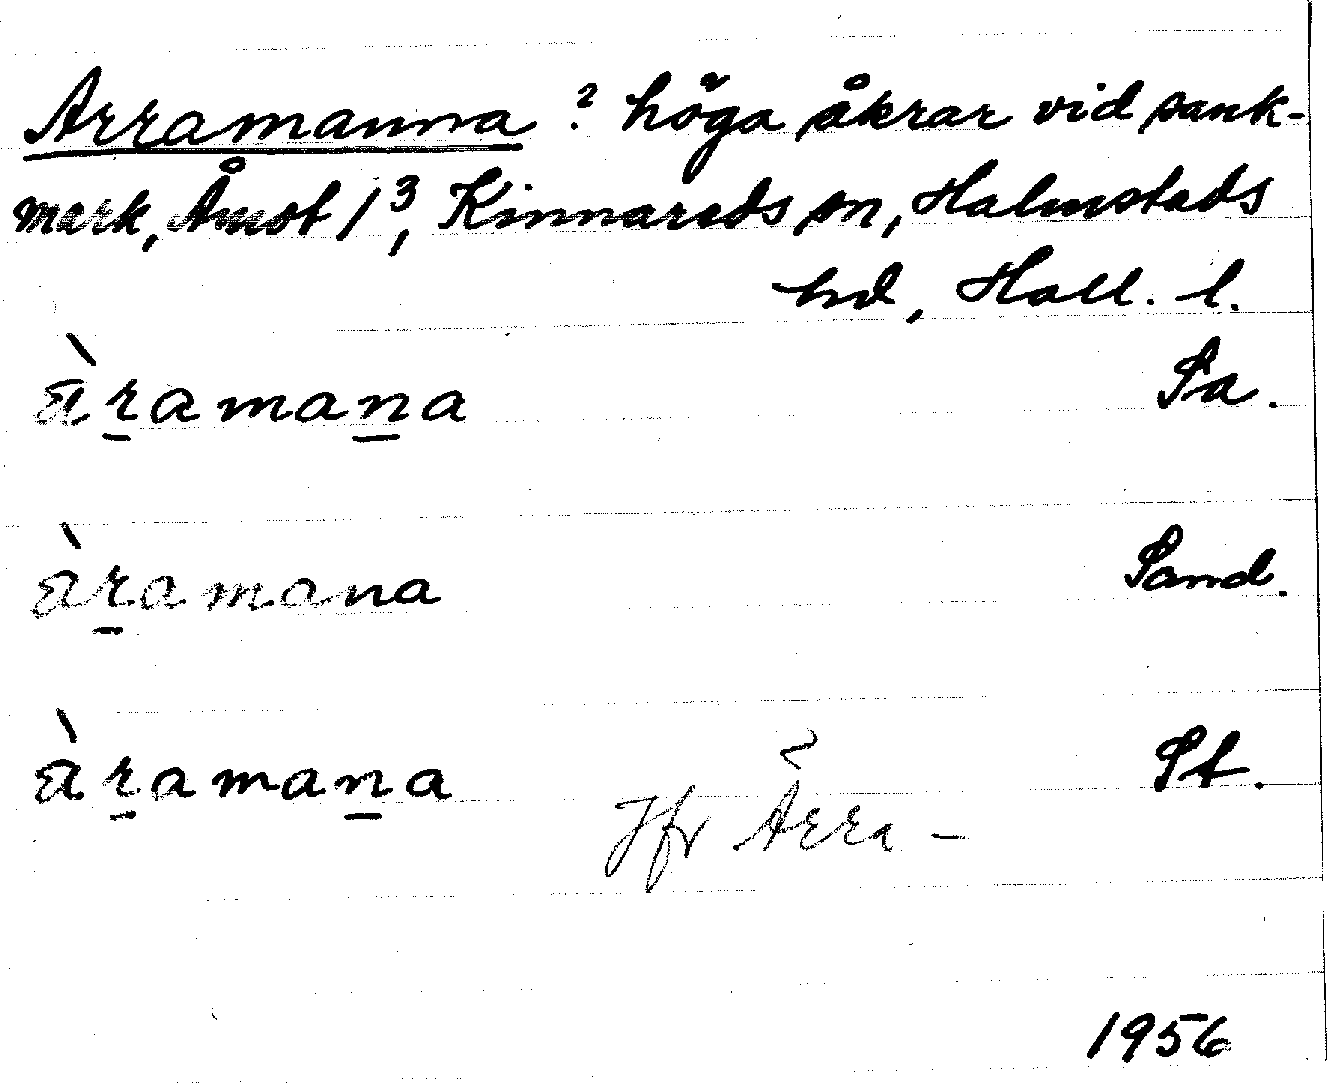 Arramanna ? höga åkrar vid sank-
mark, Åmot 1³, Kinnareds sn, Halmstads
hd, Hall. l.
àr̲aman̲a Sa.
àr̲amana Sand.
àr̲aman̲a St.
Jfr Ärra –
1956